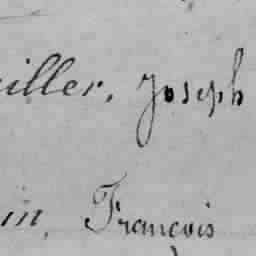 iller, Joseph
in, François